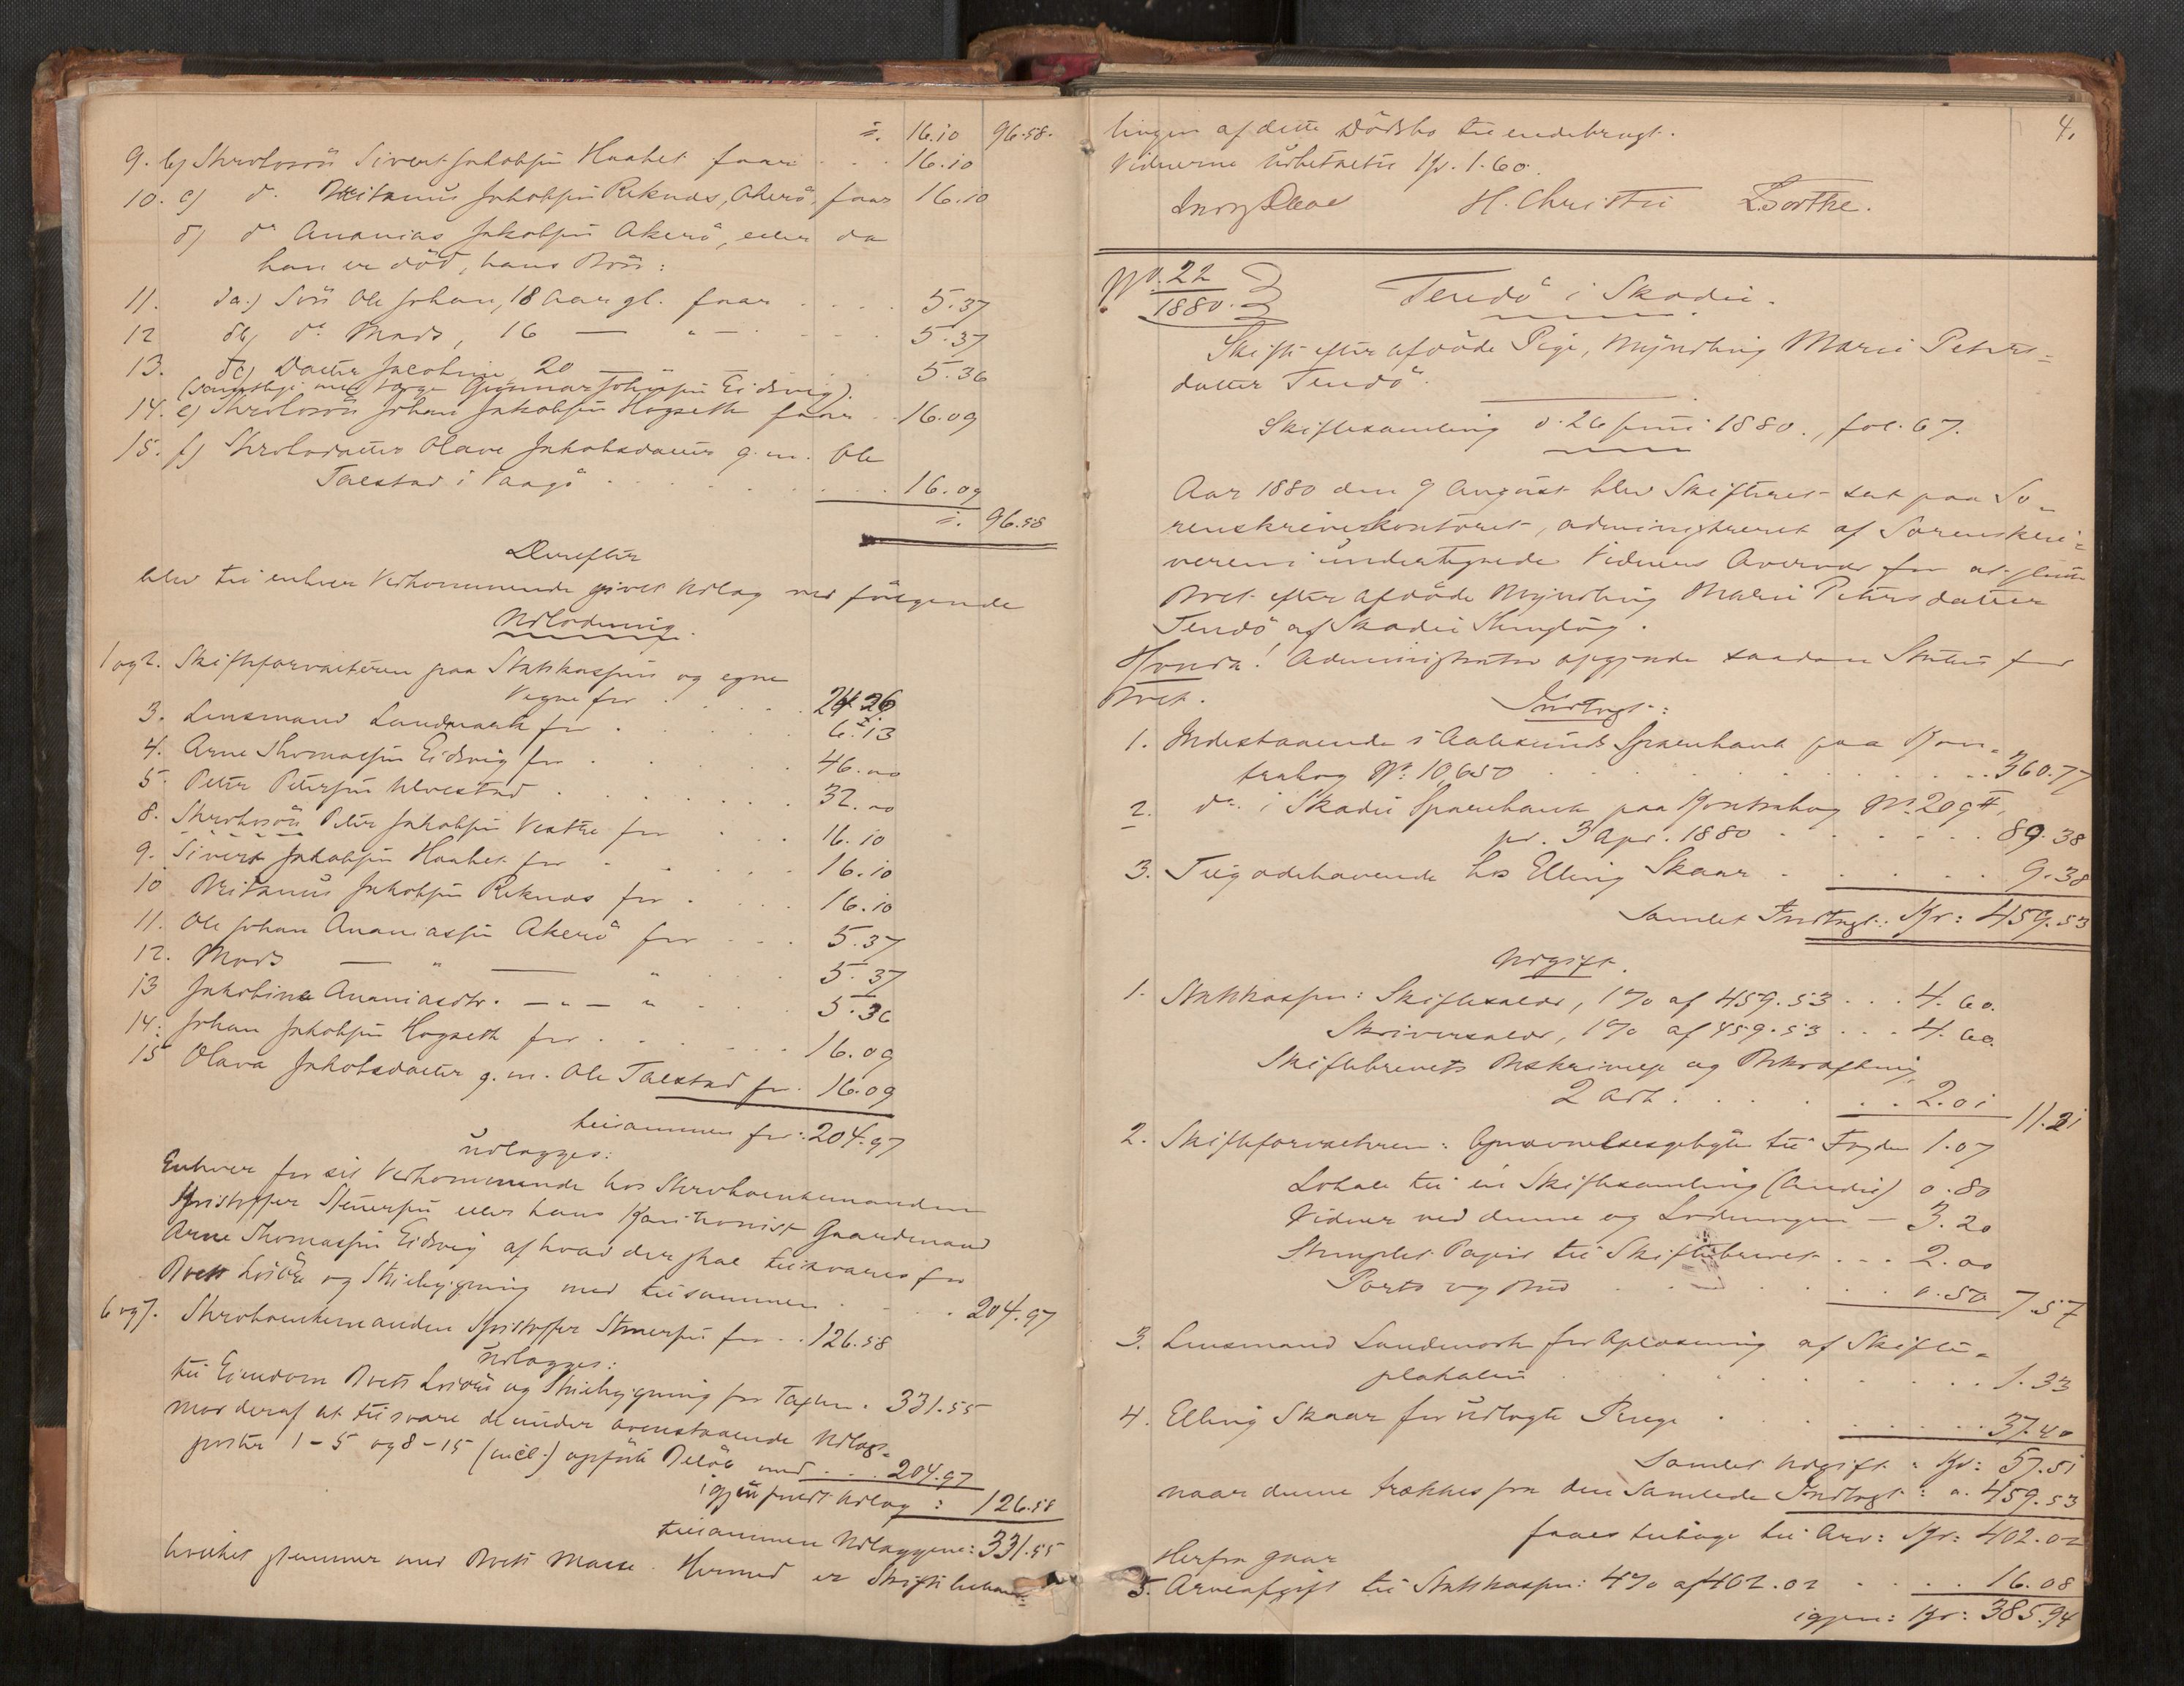 ÷. 16.10 96.58.
9. b) Skrolosön Sivert Jakobsen Haabet faar 16.10
10. c) do. Jakobsen Reknes, Akerö, faar 16.10
d) do Ananias Jakobsen Akerö, eller da
han er död, hans Börn:
11. da.) Sön Ole Johan, 18 Aar gl. faar 5.37
12 db) do. Mads, 16 — " — 5.37
13. dc) Datter Jacobine 20 — " — 5.36
(samtlige med Værge Gunnar Johnsen Eidsvig).
14. e) Skrolosön Johan Jakobsen Hogseth faar 16.09
15. f) Skrolodatter Olave Jakobsdatter g. m. Ole
Talstad i Vaagö 16.09
÷. 96.58
Derefter
blev til enhver Vedkommende givet Udlæg ved fölgende
Udlodning.
1 og 2. Skifteforvalteren paa Statskassens og egne
Vegne for 24.26
3. Lensmand Landmark for 6.13
4. Arne Thomassen Eidsvig for 46.00
5. Petter Pettersen Ulvestad 32.00
8. Skrolosön Peter Jakobsen Vestre for 16.10
9. Sivert Jakobsen Haabet for 16.10
10 Jakobsen Reknes for 16.10
11. Ole Johan Ananiassen Akerö for 5.37
12. Mads — " — " 5.37
13 Jakobine Ananiasdtr. — " — " 5.36
14. Johan Jakobsen Hogseth for 16.09
15 Olava Jakobsdatter g. m. Ole Talstad for 16.09
tilsammen for: 204.97
udlægges:
Enhver for sit Vedkommende hos Skroloenkemanden
Kristoffer Steinersen eller hans Kautionist Gaardmand
Arne Thomassen Eidsvig af hvad der skal tilsvares for
Boets Lösöre og Huusbygning med tilsammen 204.97
6 og 7. Skroloenkemanden Kristoffer Steinersen for 126.58
udlægges:
til Eiendom Boets Lösöre og Huusbygning for Taxten 331.55
mod deraf at tilsvare de under ovenstaaende Udlægs-
poster 1-5 og 8-15 (incl.) opförte Belöb med 204.97
igjen fuldt Udlæg: 126.58
tilsammen Udlæggene: 331.55
hvilket stemmer med Boets Masse. Hermed er Skiftebehand-
4.
lingen af dette Dödsbo tilendebragt.
Vidnerne udbetaltes Kr. 1.60.
H. Christie
No. 22
1880.
Tendö i Skodje.
Skifte efter afdöde Pige, Myndling Marie Peters-
datter Tendö.
Skiftesamling d. 26 Juni 1880., fol. 67.
Aar 1880 den 9 August blev Skifteret sat paa So-
renskriverkontoret, administreret af Sorenskri-
veren i undertegnede Vidners Overvær for at slutte
Boet efter afdöde Myndling Marie Petersdatter
Tendö af Skodje Thinglag.
Hvorda! Administrator opgjorde saadan Status for
Boet.
Indtægt:
1. Indestaaende i Aalesunds Sparebank paa Kon-
trabog No. 10,650 360.77
2. do. i Skodje Sparebank paa Kontrabog No. 209 II,
pr. 3 Apr. 1880 89.38
3. Tilgodehavende hos Elling Skaar 9.38
Samlet Indtægt: Kr: 459.53
Udgift.
1. Statskassen: Skiftesalær, 1% af 459.53 4.60.
Skriversalær, 1% af 459.53 4.60.
Skiftebrevets Beskrivelse og Bekræftning,
2 Ark 2.01 11.21
2. Skifteforvalteren: Opnævnelsesgebyhr til Fogden 1.07
Lokale til en Skiftesamling 0.80
Vidner ved denne og Lodningen — 3.20
Stemplet Papir til Skiftebrevet 2.00
Porto og Bud 0.50 7.57
3. Lensmand Landmark for Oplæsning af Skifte-
plakaten 1.33
4. Elling Skaar for udlagte Penge 37.40
Samlet Udgift: Kr: 57.51
naar denne trækkes fra den Samlede Indtægt: „ 459.53
faaes tilbage til Arv: Kr: 402.02
Herfra gaar
5. Arveafgift til Statskassen: 4% af 402.02 16.08
igjen: Kr: 385.94